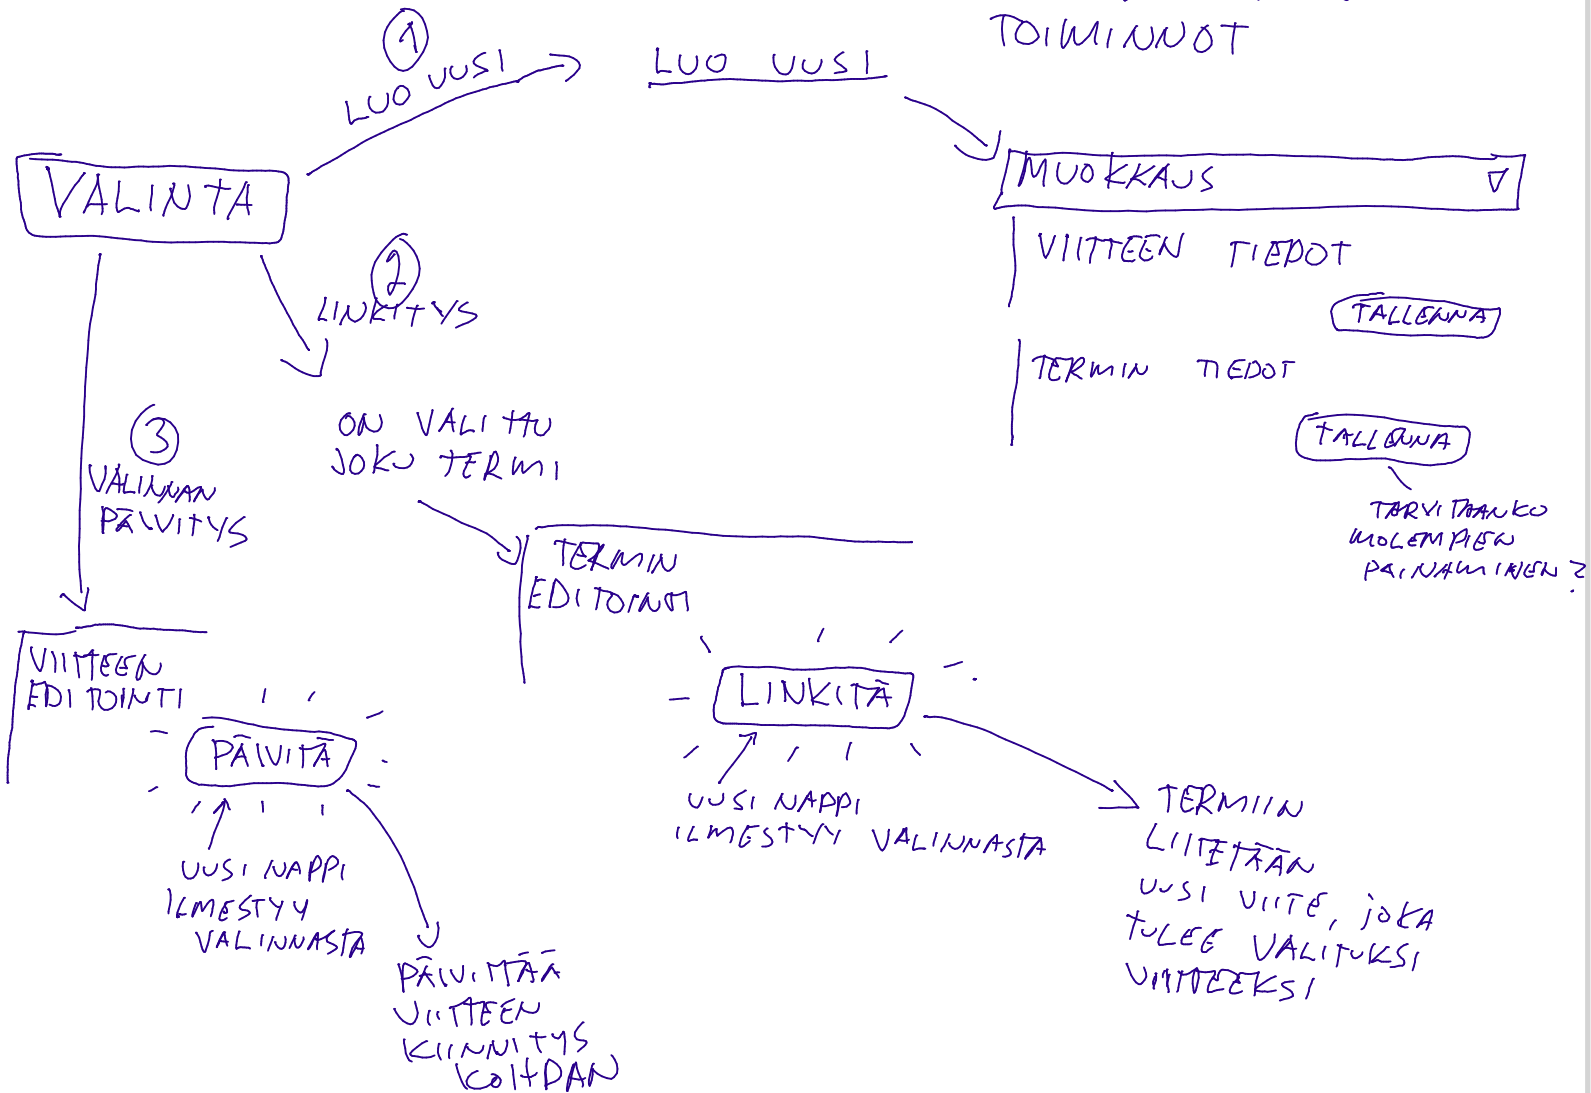 TOIMINNOT
1
LUO UUSI
LUO UUSI
VALINTA
MUOKKAUS
VIITTEEN TIEDOT
TALLENNA
TERMIN TIEDOT
TALLENNA
TARVITAANKO
MOLEMPIEN
PAINAMINEN?
2
LINKITYS
ON VALITTU
JOKU TERMI
TERMIN
EDITOINTI
LINKITÄ
UUSI NAPPI
ILMESTYY VALINNASTA
TERMIIN
LIITETÄÄN
UUSI VIITE, JOKA
TULEE VALITUKSI
VIITTEEKSI
3
VALINNAN
PÄIVITYS
VIITTEEN
EDITOINTI
PÄIVITÄ
UUSI NAPPI
ILMESTYY
VALINNASTA
PÄIVITTÄÄ
VIITTEEN
KIINNITYS
KOHDAN